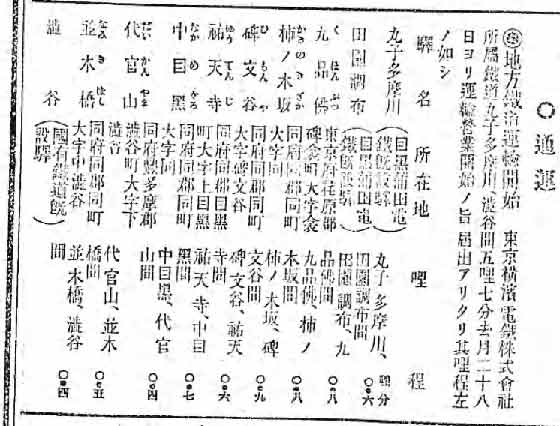 ○通運
地方鐵道運輸開始　東京橫濱電鐵株式會社
所屬鐵道丸子多摩川、澁谷間五哩七分去月二十八
日ヨリ運輸營業開始ノ旨屆出アリタリ其哩程左
ノ如シ
驛名　所在地　哩程
哩分
丸子多摩川　（目黑蒲田電鐵旣設驛）　丸子多摩川、田園調布間　〇・六
田園調布　（目黑蒲田電鐵旣設驛）　田園調布、九品佛間　〇・八
九品佛　東京府荏原郡碑衾町大字衾　九品佛、柿ノ木坂間　〇・八
柿ノ木坂　同府同郡同町大字同　柿ノ木坂、碑文谷間
碑文谷　同府同郡同町大字碑文谷　碑文谷、祐天寺間　〇・九
祐天寺　同府同郡目黑町大字上目黑　祐天寺、中目黑間　〇・六
中目黑　同府同郡同町大字同　中目黑、代官山間　〇・七
代官山　同府豐多摩郡澁谷町大字下澁谷　代官山、並木橋間　〇・四
並木橋　同府同郡同町大字中澁谷　並木橋、澁谷間　〇・五
澁谷　（國有鐵道旣設驛）　〇・四